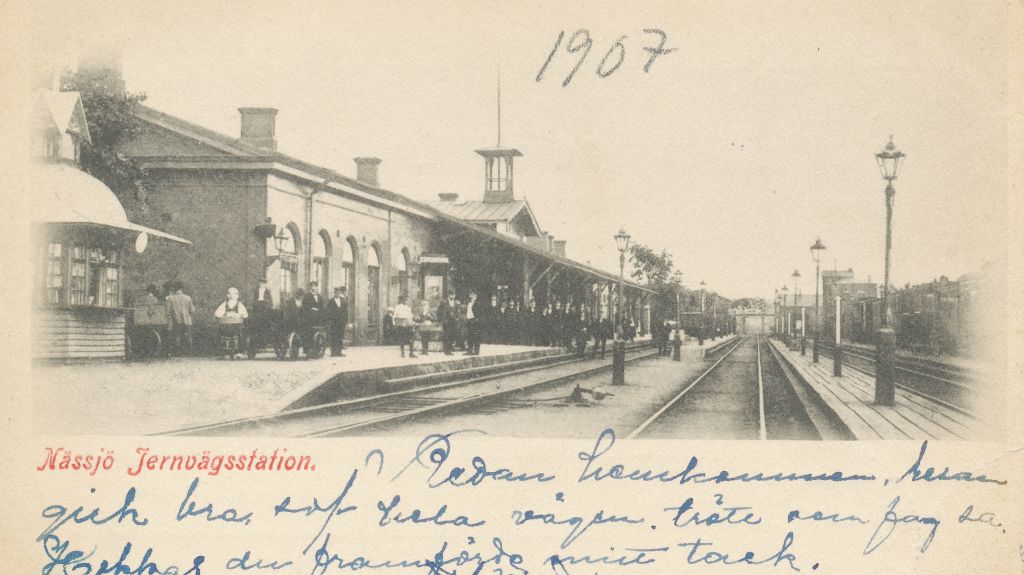 1907
Nässjö Jernvägsstation.
Redan hemkommen, resan
gick bra, sof hela vägen. trött som jag sa.
Hoppas du framförde mitt tack.